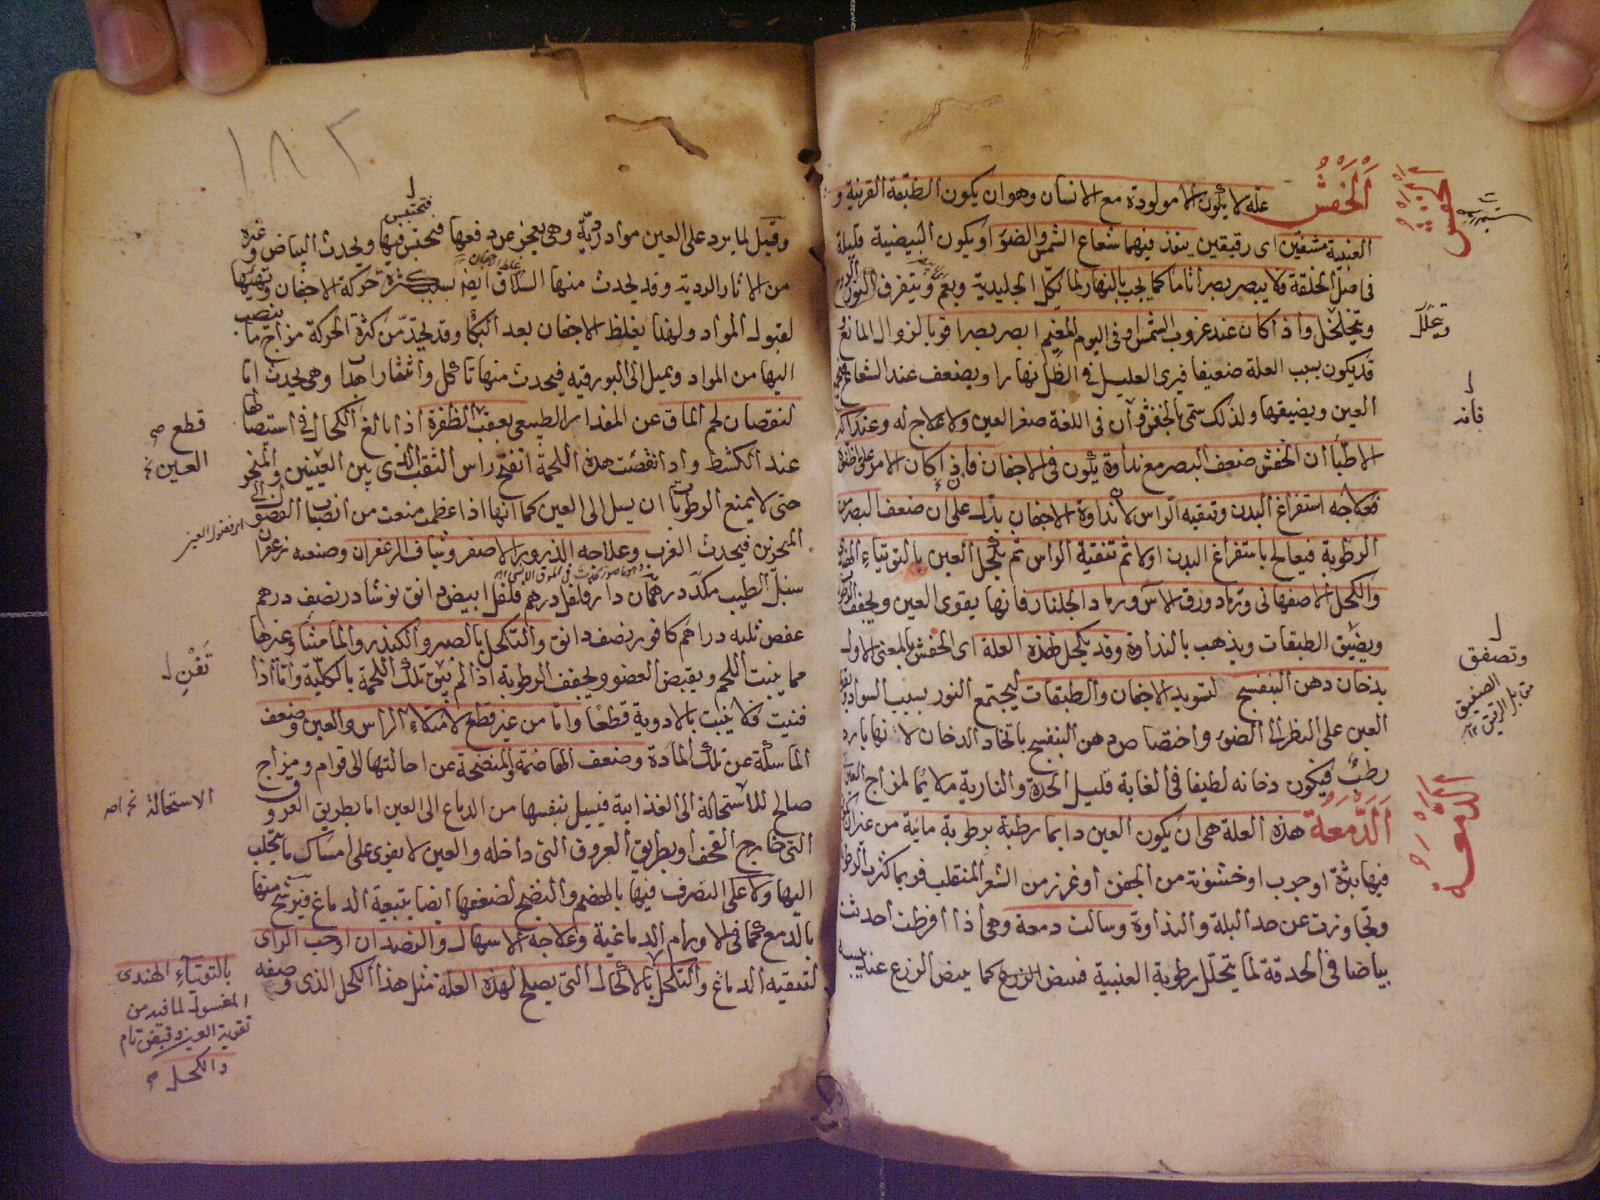 الخفش علة لا يكون الا مولودة مع الانسان وهو ان يكون الطبقة القرنية و
العنبية مشفتين اى رقيقتين ينفذ فيهما شعاع الشمس والضوء او يكون البيضية قليلة
فى اصل الخلقة فلا يبصر بصرا تاما كما يجب بالنهار لما يكل الجليدية ويتفرق النور
ويتخلخل واذا كان عند غروب الشمس او فى اليوم المغيم ابصر بصرا قويا لزوال المانع و
قد يكون بسبب العلة ضعيفا فيرى العليل فى الظل نهارا ويضعف عند الشعاع
العين ويضيقها ولذلك سمى بالخفش فان فى اللغة صغر العين ولا علاج له وعند اكثر
الاطباء ان الخفش ضعف البصر مع نداوة يكون فى الاجفان فان كان الامر على
فعلاجه استفراغ البدن وتنقية الراس لان نداوة الاجفان يدل على ان ضعف البصر من
الرطوبة فيعالج باستفراغ البدن اولا ثم تنقية الراس ثم يكحل العين بالتوتياء الهندى
والكحل الاصفهانى ورماد ورق الآس ورماد الجلنار فانها يقوى العين ويجفف
ويضيق الطبقات ويذهب بالنداوة وقد يكحل لهذه العلة اى الخفش بالمعنى الاول
بدخان دهن البنفسج لتسويد الاجفان والطبقات ليجتمع النور بسبب السواد
العين على النظر الى الضوء واختصاص دهن البنفسج باتخاذ الدخان لانها بارد
رطب فيكون دخانه لطيفا فى الغاية قليل الحدة والنارية ملايما لمزاج العين
الدمعة هذه العلة هى ان يكون العين دايما رطبة برطوبة مائية من غير ان
فيها بثرة او جرب او خشونة من الجفن او غرز من الشعر المنقلب فربما كثرت الرطوبة
وتجاوزت عن حد البلة والنداوة وسالت دمعة وهى اذا افرطت احدثت
بياضا فى الحدقة لما يتحلل رطوبة العنبية فيبيض الزرع كما يبيض الزرع عند يبسه
خفش
ويتحلل
فانه
وتصفق
الصفيق
مقابل الرقيق
الدمعة
١٨٢
وقيل لما يرد على العين مواد ردية وهى يعجز عن دفعها فتحتبس فيها ويحدث البياض وغيره
من الاثار الردية وقد يحدث منها السلاق ايضا بسبب كثرة حركة الاجفان وتهيئها
لقبول المواد ولهذا يغلظ الاجفان بعد البكاء وقد يحتد من كثرة الحركة مزاج ما ينصب
اليها من المواد ويميل الى البورقية فيحدث منها تأكل وانتثار اهداب وهى يحدث اما
لنقصان لحم الماق عن المقدار الطبيعى بعقب الظفرة اذا بالغ الكحال فى استيصالها
عند الكشط واذا نقصت هذه اللحمة انفتح راس الثقب الذى بين العينين والمنخر
حتى لا يمنع الرطوبات ان يسيل الى العين كما انها اذا عظمت منعت من انصباب الفضول الى
المنخرين فيحدث الغرب وعلاجه الذرور الاصفر وشياف الزعفران وصنعته زعفران
سنبل الطيب مكد درهمان دار فلفل درهم فلفل ابيض دانق نوشادر نصف درهم
عفص ثلثه دراهم كافور نصف دانق والتكحل بالصبر والكندر والماميثا وغيرها
مما ينبت اللحم ويقبض العضو ويجفف الرطوبة اذا لم تبق تلك اللحمة بالكلية واما اذا
فنيت فلا ينبت بالادوية قطعا واما من غير قطع لامتلاء الراس والعين وضعف
الماسكة عن تلك المادة وضعف الهاضمة والمنضجة عن احالتها الى قوام ومزاج
صالح للاستحالة الى الغذائية فيسيل بنفسها من الدماغ الى العين اما بطريق العروق
التى خارج القحف او بطريق العروق التى داخله والعين لا يقوى على امساك ما يتحلب
اليها ولا على التصرف فيها بالهضم والنضج لضعفها ايضا بتبعية الدماغ فيرشح منها
بالدمع كما فى الاورام الدماغية وعلاجه الاسهال والفصد ان اوجب الراى
لتنقية الدماغ والتكحل بالاكحال التى يصلح لهذه العلة مثل هذا الكحل الذى وصفه
فتحتبس
قطع
العين
تفن
الاستحالة
بالتوتياء الهندى
المغسول لما فيه من
تقوية العين وقبض تام
والكحل